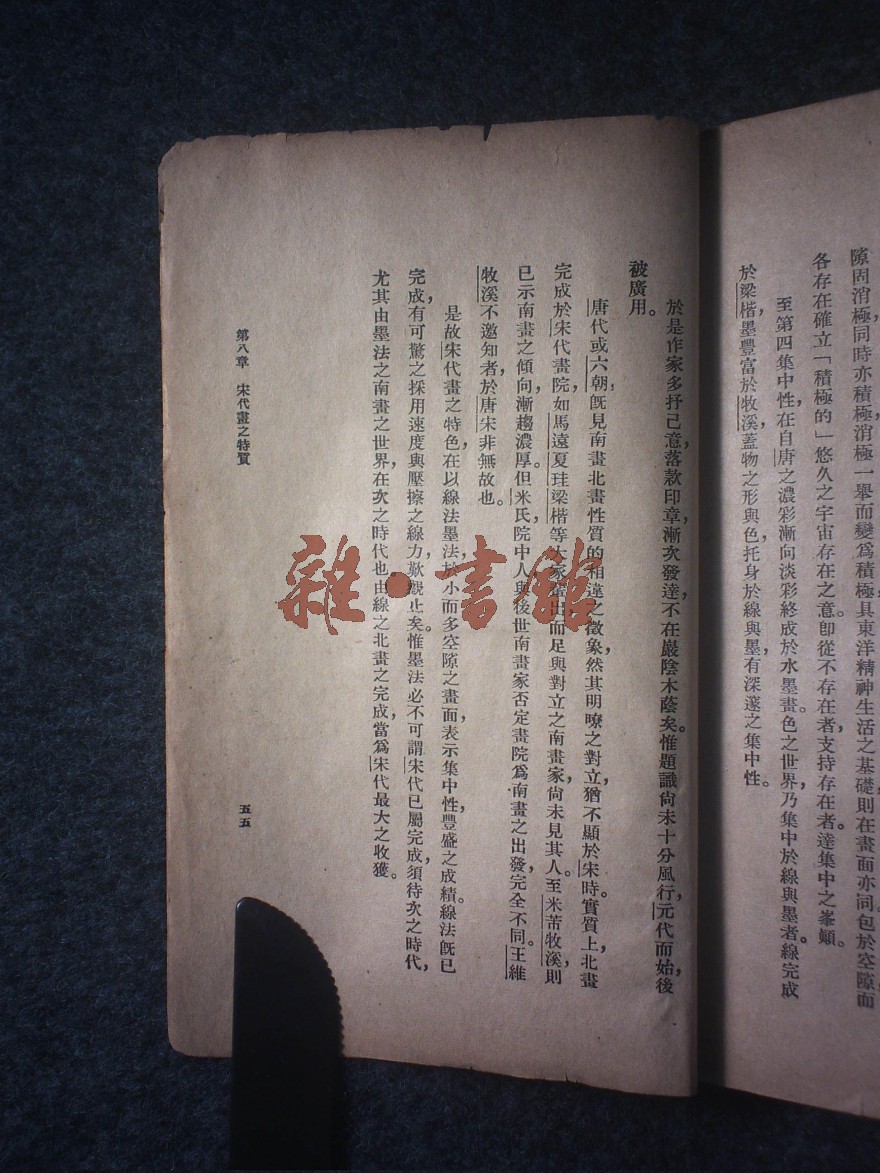 隙固消極，同時亦積極，消極一舉而變爲積極，具東洋精神生活之基礎，則在畫面亦同包於空隙而
各存在確立「積極的」悠久之宇宙存在之意。卽從不存在者，支持存在者，達集中之峯巔。
至第四集中性，在自唐之濃彩漸向淡彩，終成於水墨畫。色之世界，乃集中於線與墨者。線完成
於梁楷，墨豐富於牧溪，蓋物之形與色，托身於線與墨，有深邃之集中性。
於是作家多抒己意，落款印章，漸次發達，不在巖陰木蔭矣。惟題識尚未十分風行，元代而始，後
被廣用。
唐代或六朝，旣見南畫北畫性質的相違之徵象，然其明瞭之對立，猶不顯於宋時。實質上，北畫
完成於宋代畫院，如馬遠夏珪梁楷等大家輩出，而足與對立之南畫家，尚未見其人。至米芾牧溪，則
已示南畫之傾向，漸趨濃厚。但米氏院中人，與後世南畫家否定畫院爲南畫之出發，完全不同。王維
牧溪不邀知者於唐宋，非無故也。
是故宋代畫之特色，在以線法墨法，於小而多空隙之畫面，表示集中性，豐盛之成績。線法旣已
完成，有可驚之採用速度與壓擦之線力，歎觀止矣。惟墨法必不可謂宋代已屬完成，須待次之時代，
尤其由墨法之南畫之世界，在次之時代也。由線之北畫之完成，當爲宋代最大之收獲。
第八章　宋代畫之特質
五五
雜·書館